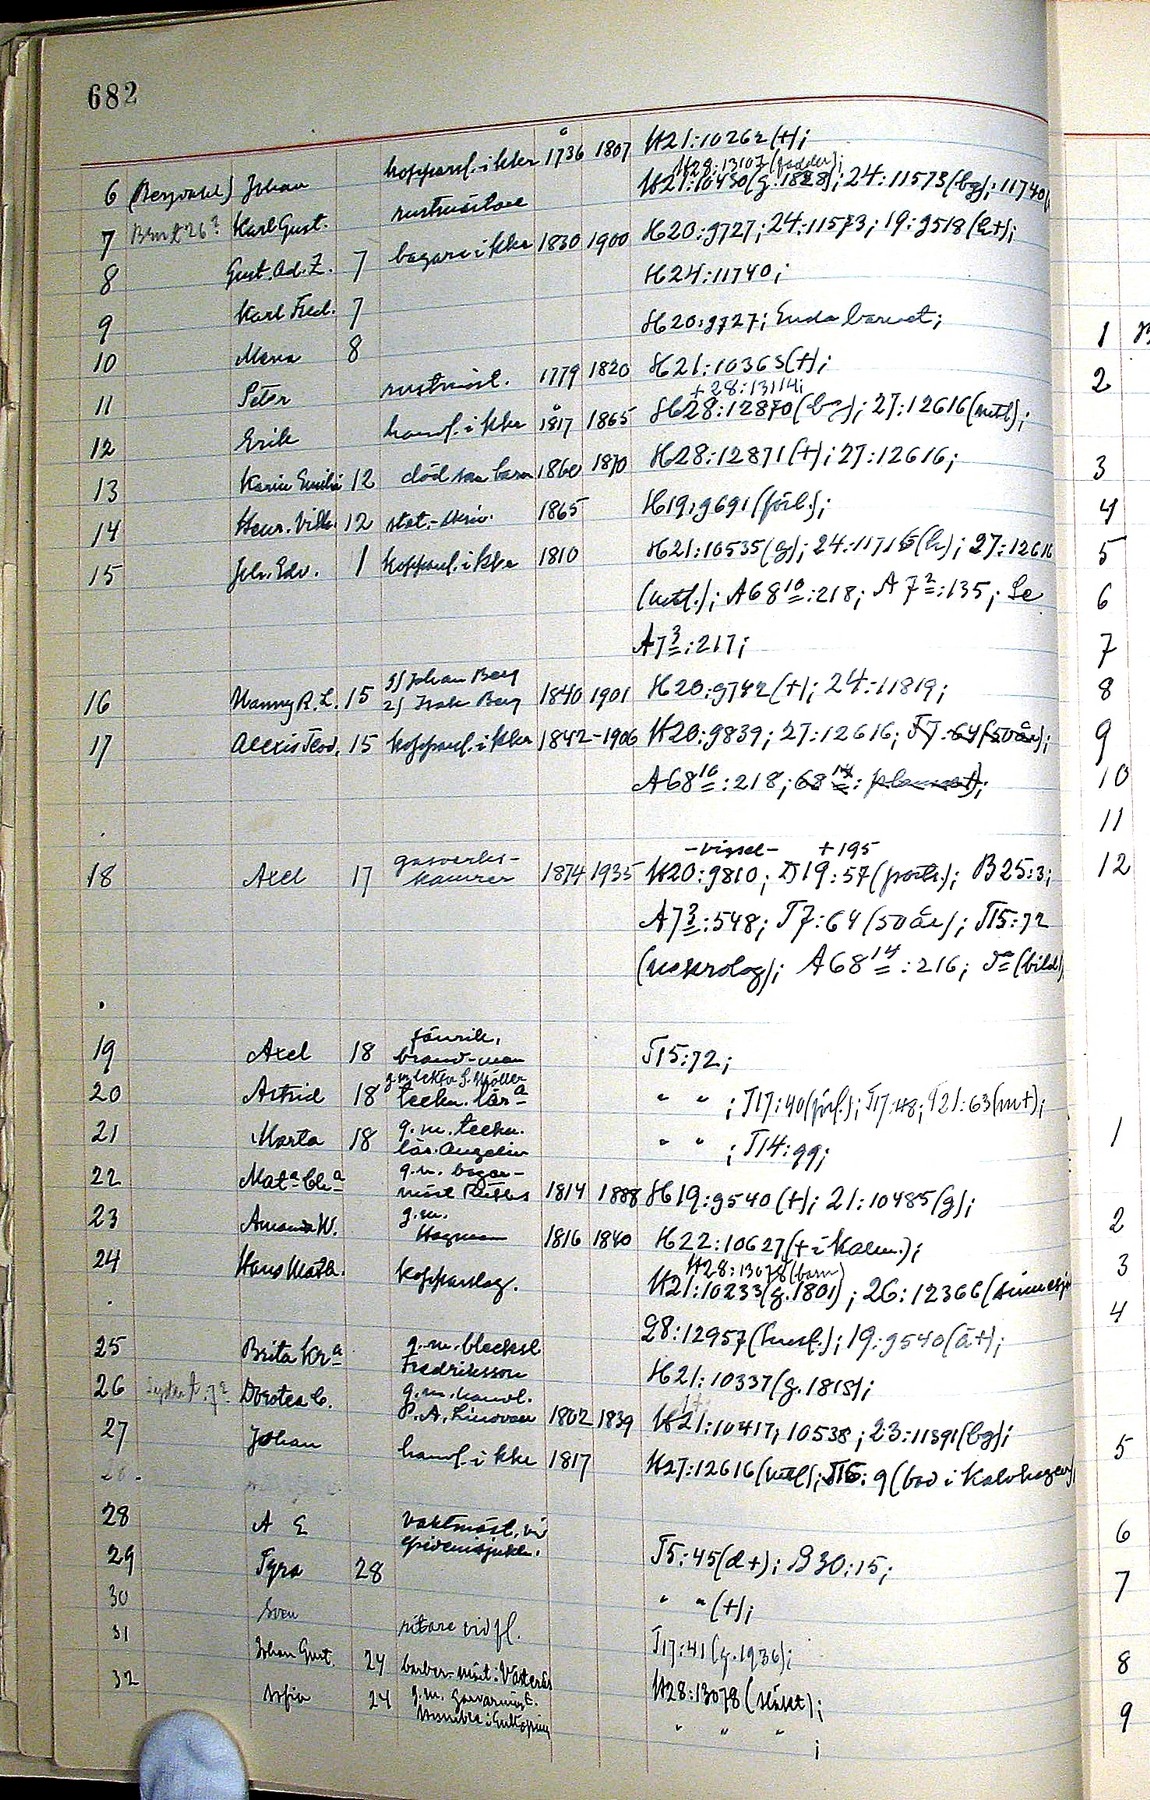 682
6 (Bergvall) Johan kopparsl. i kkr 1736 1807 H21:10262(+);
H28:13107(fadder);
rustmästare H21:10430(g.1828); 24:11573(bg); 11740
7 Karl Gust. bagare i kkr 1830 1900 H20:9727; 24:11573; 19:9518(h+);
8 Gust. Ad. Z. 7 H24:11740;
9 Karl Fred. 7 H20:9727; Enda barnet;
10 Maria 8
11 Peter rustmäst. 1779 1820 H21:10363(+);
+28:13114;
12 Erik handl. i kkr 1817 1865 H28:12870(bg); 27:12616(mtl);
13 Karin Emilia 12 död som barn 1860 1870 H28:12871(+); 27:12616;
14 Henr. Vilh. 12 stat.-skriv. 1865 H19:9691(förl.);
15 Joh. Edv. 1 kopparsl. i kkr 1810 H21:10535(g); 24:11716(h); 27:12616
(mtl.); A68 10:218; A7 2:135; Se
A7 3:217;
1) Johan Berg
16 Nanny R. L. 15 2) Isak Berg 1840 1901 H20:9742(+); 24:11819;
17 Alexis Teod. 15 kopparsl. i kkr 1842-1906 H20:9839; 27:12616; T7:64(50år);
A68 10:218; 68 14:
-vissel- +195
18 Axel 17 gasverks-kamrer 1874 1935 H20:9810; D19:57(portr.); B25:3;
A7 3:548; T7:64(50år); T15:72
(nekrolog); A68 14:216; (bild)
19 Axel 18 fänrik, brand-man T15:72;
20 Astrid 18 g.m. lektor S. Möller teckn. lär a " " ; T17:40(förl.); T17:48; T21:63(m+);
21 Marta 18 g.m. teckn. lär. Angelin " " ; T14:99;
22 Mat a Chr a g.m. bagar-mäst 1814 1888 H19:9540(+); 21:10485(g);
23 Amanda W. g.m. Hagman 1816 1840 H22:10627(+ i Kalm.);
H28:13078(barn)
24 Hans Math. kopparslag. H21:10233(g.1801); 26:12366(
28:12957(hustl.); 19:9540(ä+);
25 Brita Kr a g.m. blecksl Fredriksson H21:10337(g.1815);
26 Dorotea C. g.m. handl. P. A. Lindvall 1802 1839 H21:10417; 10538; 23:11391(bg);
27 Johan handl. i kkr 1817 H27:12616(mtl); T16:9(bod i Kalvhagen)
28.
28 A E vaktmäst. vid epidemisjukh. T5:45(d+); B30:15;
29 Tyra 28 " "(+);
30 Sven ritare vid fl. T17:41(g.1936);
31 Johan Gust. 24 barber-mäst i Västerås H28:13078(släkt);
32 Sofia 24 g.m. garvarmäst. i Enköping " " " ;
1
2
3
4
5
6
7
8
9
10
11
12
1
2
3
4
5
6
7
8
9